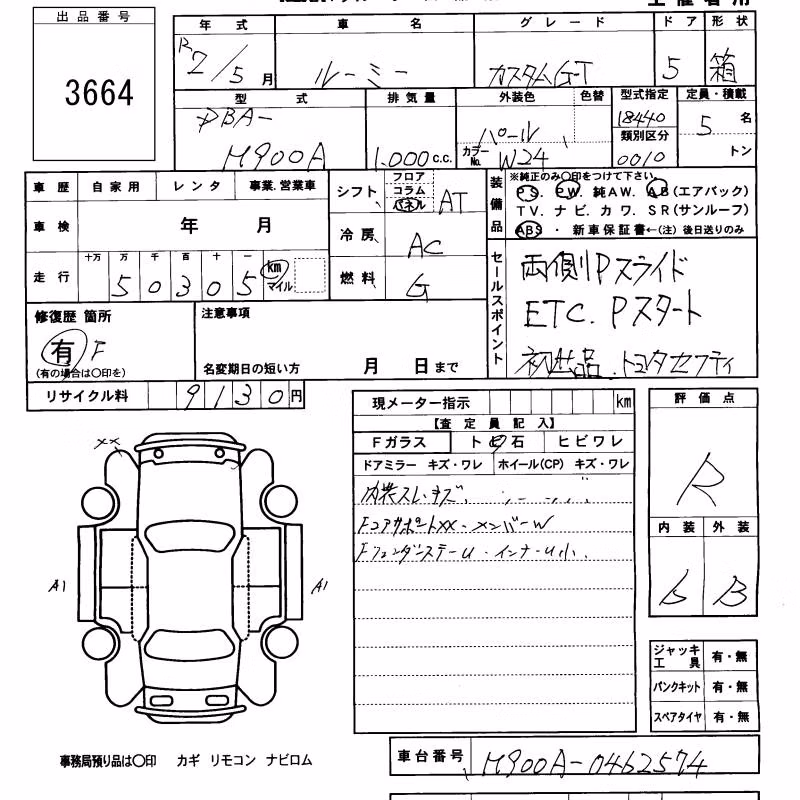 出品番号
3664
年式 車名 グレード ドア 形状
R2/5月 ルーミー カスタムGT 5 箱
型式 排気量 外装色 色替 型式指定 定員・積載
DBA- パール 18440 5名
類別区分
M900A 1.000c.c. カラーNo. W24 0010 トン
車歴 自家用 レンタ 事業.営業車
車検 年 月
走行 十万 万 千 百 十 一 km マイル
50305
シフト フロア コラム パネル AT
冷房 AC
燃料 G
装備品
※純正のみ○印をつけて下さい。
PS. PW. 純AW. AB(エアバック)
TV. ナビ. カワ. SR(サンルーフ)
ABS ・ 新車保証書←(注) 後日送りのみ
セールスポイント
両側Pスライド
ETC. Pスタート
トヨタセフティ
修復歴 箇所
有 F
(有の場合は○印を)
注意事項
名変期日の短い方 月 日まで
リサイクル料 9130円
現メーター指示 km
【査定員記入】
Fガラス トビ石 ヒビワレ
ドアミラー キズ・ワレ ホイール(CP) キズ・ワレ
内装スレ・キズ.
FコアサポートXX・メンバーW
FフェンダーステーU・インナーU小.
評価点
R
内装 外装
b B
XX
A1 A1
ジャッキ工具 有・無
パンクキット 有・無
スペアタイヤ 有・無
事務局預り品は○印 カギ リモコン ナビロム
車台番号 M900A-0462574